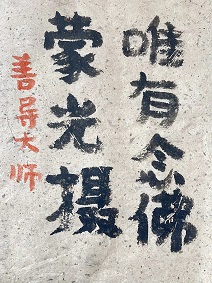 唯有念佛
蒙光摄
善导大师